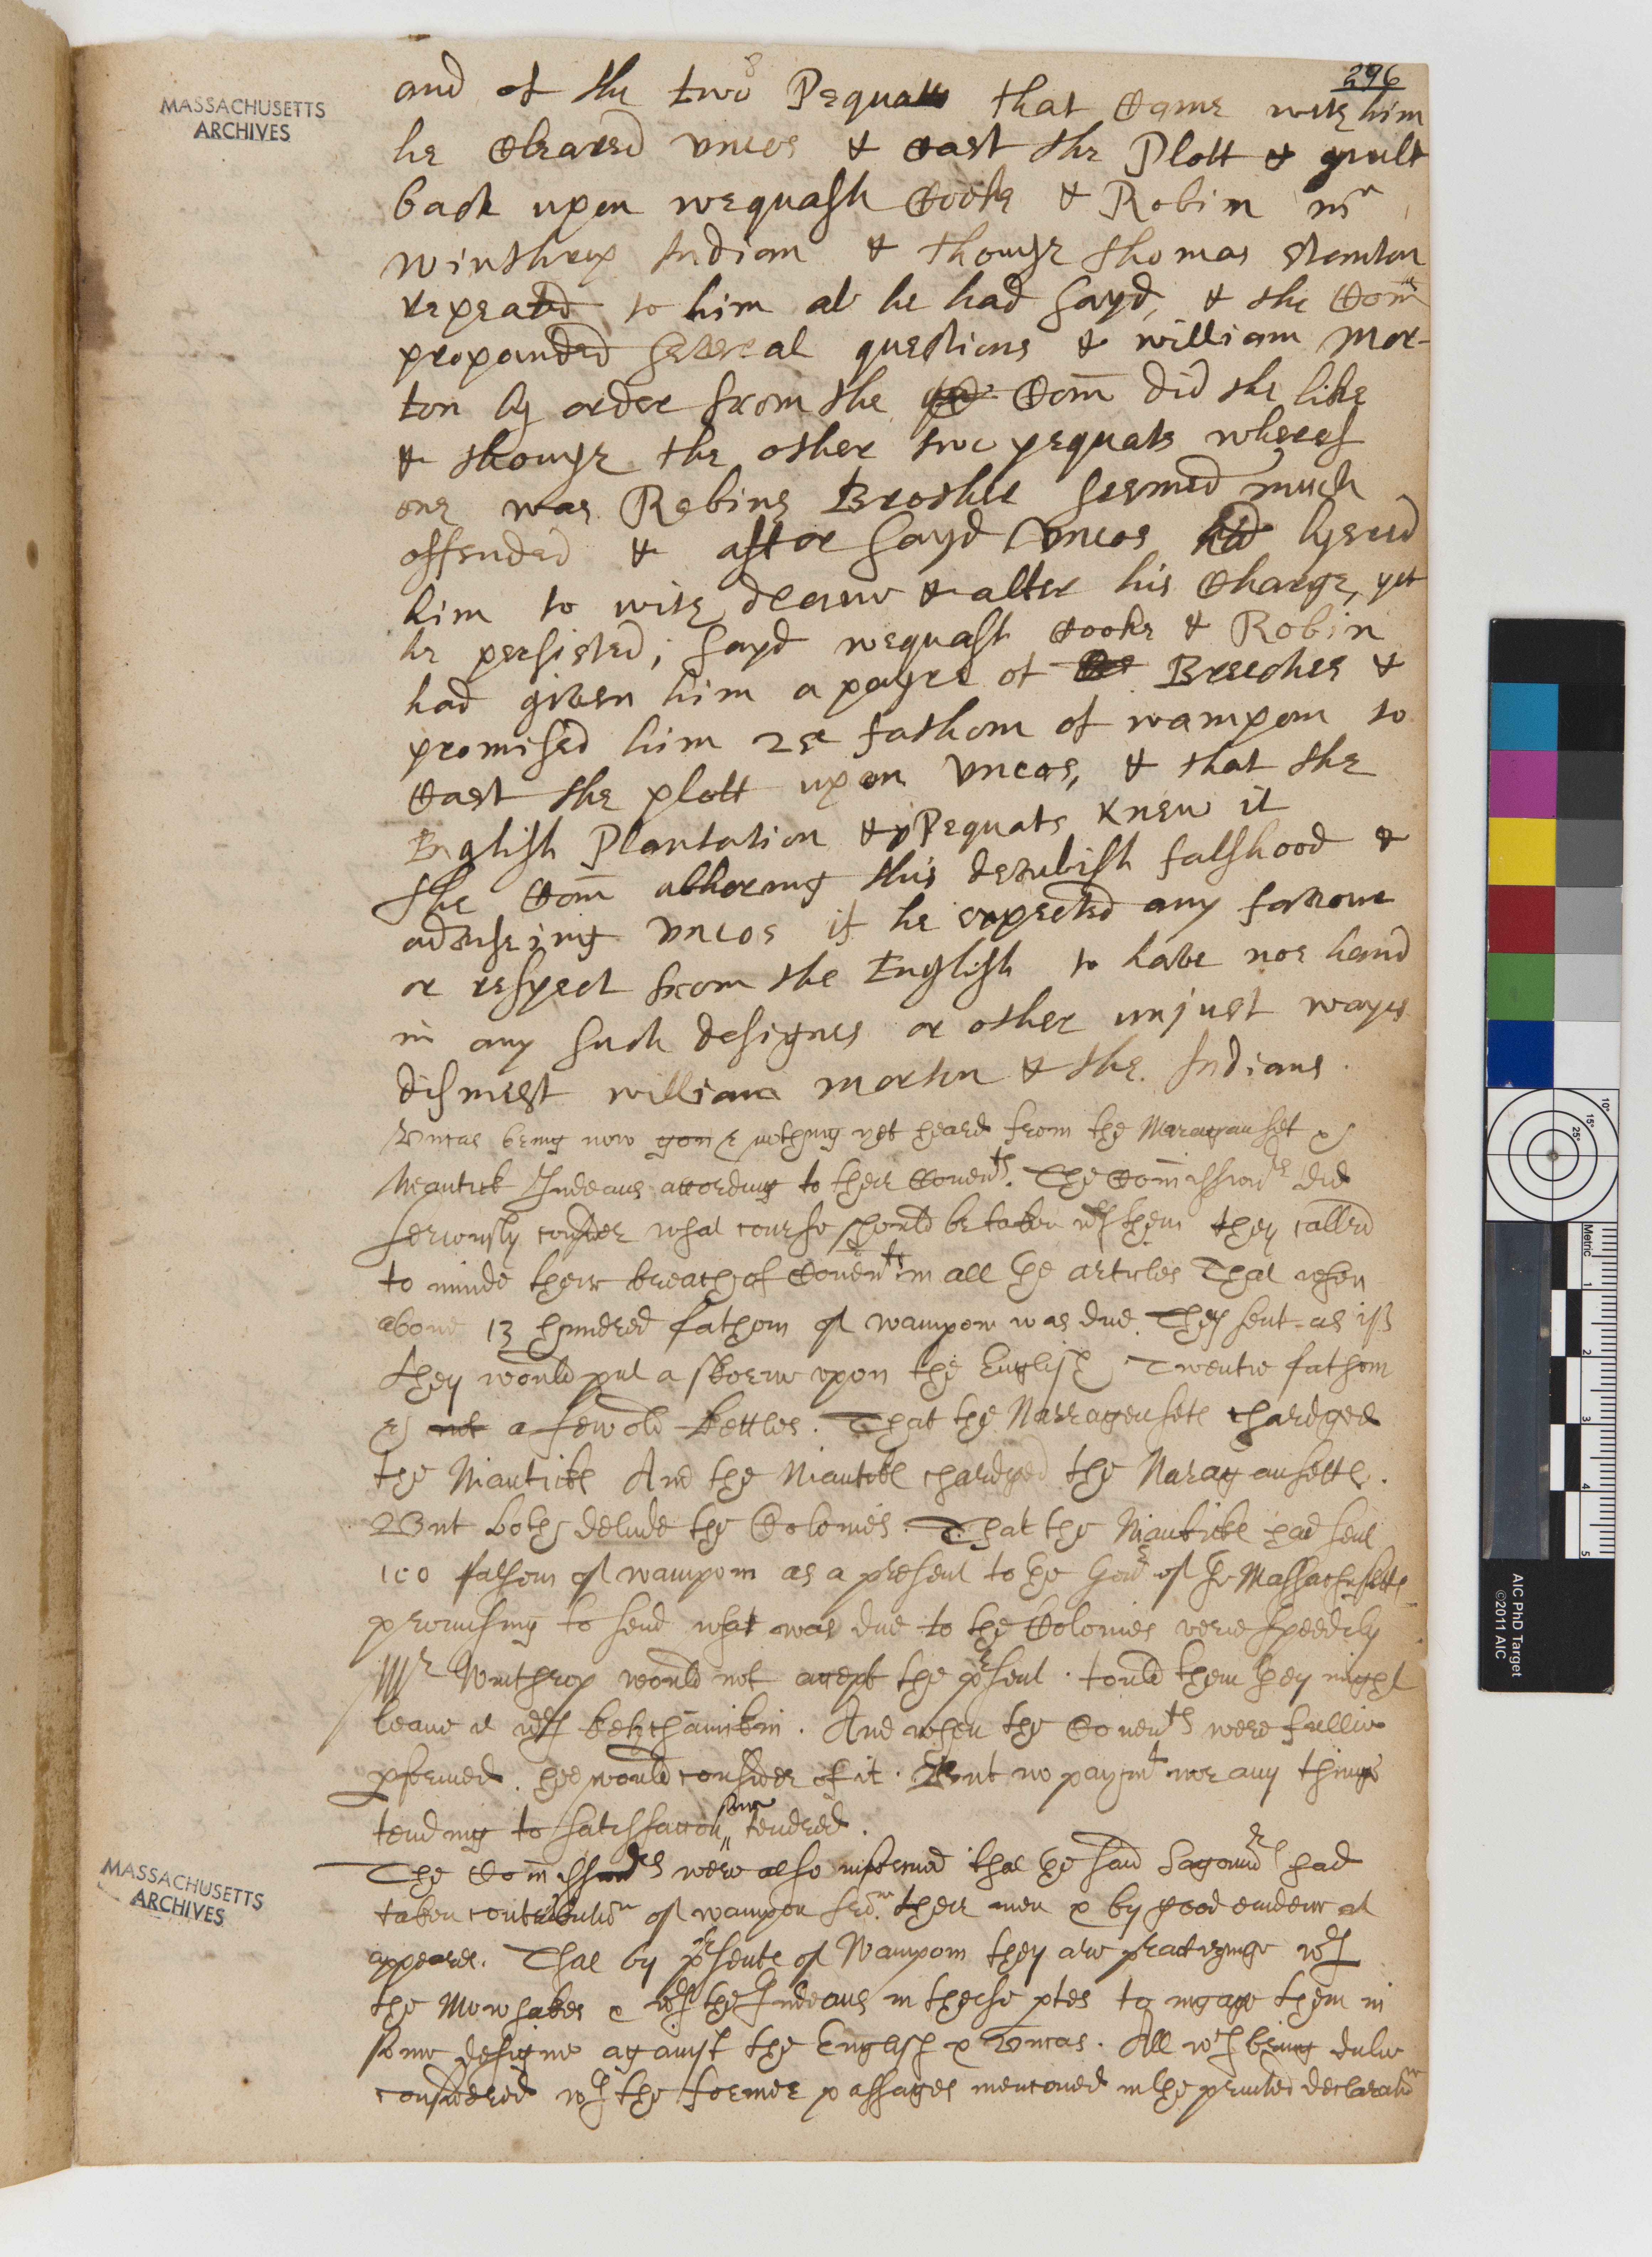 296
MASSACHUSETTS
ARCHIVES
and of the two Pequats that came with him
he cleared vncos & cast the Plott & guilt
back upon wequash Cooke & Robin mr
winthrop Indian & though thomas stanton
repeated to him al he had sayd, & the Comrs
propounded several questions & william mor-
ton by order from the Com did the like
& though the other two pequats whereof
one was Robins Brother seemed much
offended & after sayd vncos had hyred
him to with drawe & alter his charge, yet
he persisted; sayd wequash cooke & Robin
had given him a payre of Breeches &
promised him 25 fathom of wampom to
cast the plott upon vncos, & that the
English Plantation & Pequats knew it
the Com abhoring this develish falshood &
advisering vncos if he expected any favour
or respect from the English to have noe hand
in any such designes or other unjust wayes
dismest william morton & the Indians.
Vncas being now gon & nothing yet heard from the Naragauset &
Neantick Indeans according to their Couents. The Comissiors did
seriously consider what course should be taken wth them they called
to minde their breach of Couents in all the articles That when
aboue 13 hundred fathom of wampom was due They sent as if
they would put a skorne vpon the English Twentie fathom
& not a few old kettles. That the Narragensets chardged
the Nianticks And the Nianticks chardged the Naragansetts.
But both delude the Colonies. That the Nianticks had sent
100 fathom of wampom as a present to the Gour of the Massachusetts
promising to send what was due to the Colonies verie speedely
Mr Winthrop would not accept the prsent. tould them they might
leaue it wth Cutchamikin. And when the Couents were fullie
pformed. hee would consider of it. But no paymt nor any thinge
tending to satisfaccon " since tendred.
The Comissiors were also informed that the said Sagamrs had
taken contribution of wampom fro. their men & by good euidenc it
appeares. That by prsents of Wampom they are practizinge wth
the Mowhakes & wth the Indeans in these ptes to ingage them in
some designe against the English & Vncas. All wch being dulie
considered wth the former passages mencioned in the printed declaration
MASSACHUSETTS
ARCHIVES
10°
15°
25°
Metric
1
2
3
4
5
AIC PhD Target
©2011 AIC